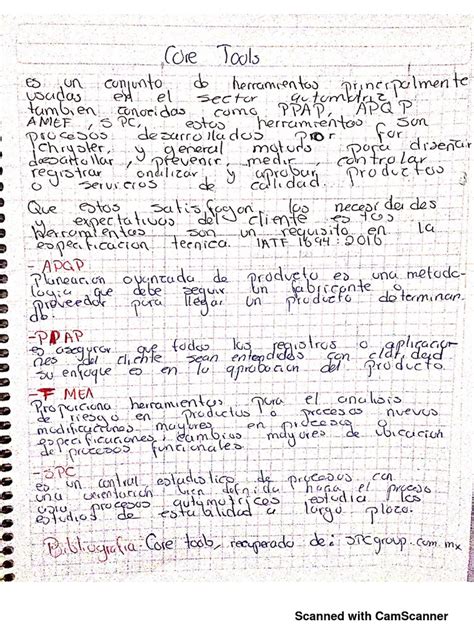 Core Tools
es un conjunto de herramientas principalmente
usadas en el sector automotriz
tambien conocidas como PPAP, APQP
AMEF, SPC, estas herramientas son
procesos desarrollados por for
Chrysler, y general motors para diseñar
desarrollar, prevenir, medir, controlar
registrar analizar y aprobar productos
o servicios de calidad.
Que estos satisfagan las necesidades
y expectativas del cliente estas
Herramientas son un requisito en la
especificacion tecnica. IATF 1694:2016
- APQP
Planeacion avanzada de producto es una metodo-
logia que debe seguir un fabricante o
proveedor para llegar un producto determinan
do.
- PPAP
es asegurar que todos los registros o aplicacio-
nes del cliente sean entendidas con claridad
su enfoque es en la aprobacion del producto.
- FMEA
Proporciona herramientas para el analisis
de riesgo en productos o procesos nuevos
modificaciones mayores en proceso o
especificaciones i cambios mayores de ubicacion
del procesos funcionales.
- SPC
es un control estadistico de procesos con
una orientacion bien definida hacia el proceso
para procesos automotricos estudia los
estudios de estabilidad a largo plazo.
Bibliografia: Core tools, recuperado de: SPCgroup.com.mx
Scanned with CamScanner